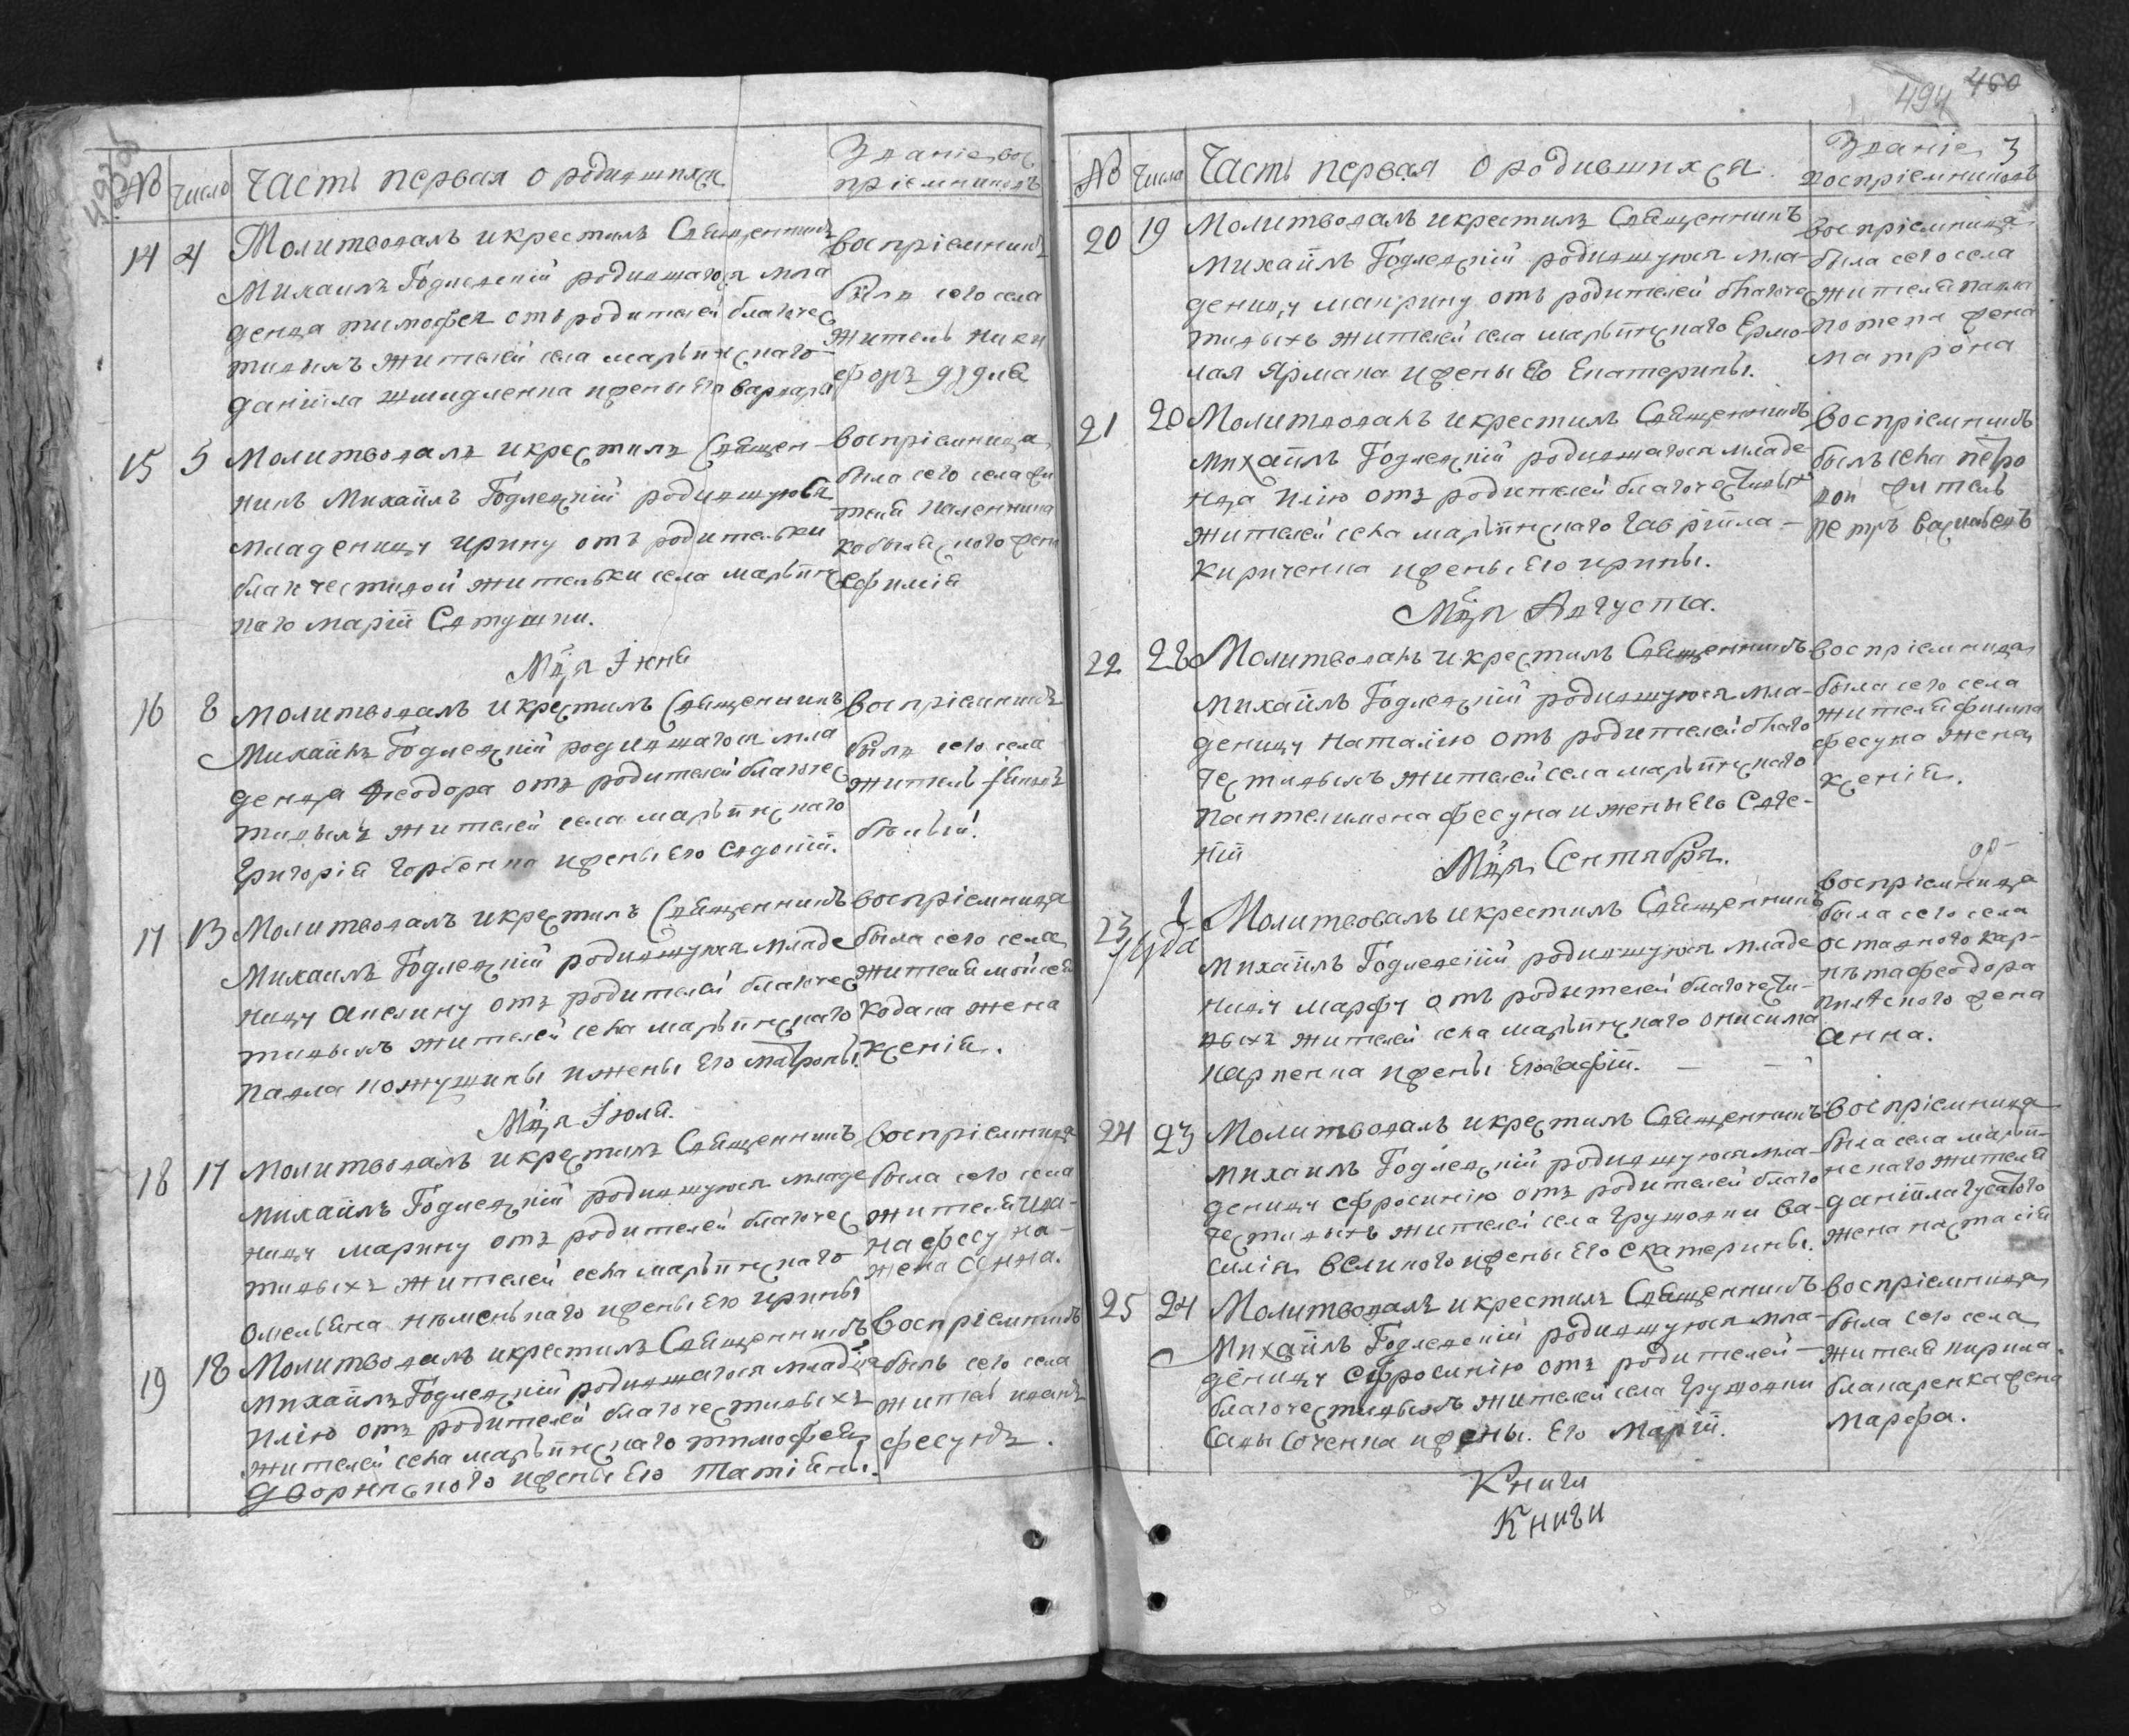 № Число Часть первая о родившихся Званіе вос
пріемниковъ
14 4 Молитвовалъ и крестилъ Священникъ
Михаилъ Годлевскій родившагося мла
денца тимофея отъ родителей благочес
тивыхъ жителей села марьинскаго
даніила жмидленка и жены его варвары
воспріемникъ
былъ сего села
житель ники
форъ дудка
15 5 Молитвовалъ и крестилъ Священ
никъ Михаилъ Годлевскій родившуюся
младеницу ирину отъ родительки
благочестивой жительки села марьинс
каго маріи
воспріемница
была сего села жи
теля
кобыляцкого жена
ефимія
Мця Іюня
16 8 Молитвовалъ и крестилъ Священникъ
Михаилъ Годлевскій родившагося мла
денца Феодора отъ родителей благочес
тивыхъ жителей села марьинскаго
Григорія Горбенка и жены его евдокіи.
воспріемникъ
былъ сего села
житель
белый.
17 13 Молитвовалъ и крестилъ Священникъ
Михаилъ Годлевскій родившуюся младе
ницу акилину отъ родителей благочес
тивыхъ жителей села марьинскаго
Павла кожушины и жены его матроны.
воспріемница
была сего села
жителя мойсея
кодака жена
ксенія.
Мця Іюля.
18 17 Молитвовалъ и крестилъ Священникъ
Михаилъ Годлевскій родившуюся младе
ницу марину отъ родителей благочес
тивыхъ жителей села марьинскаго
омельяна и жены его ирины
воспріемница
была сего села
жителя ива
на фесуна
жена анна.
19 18 Молитвовалъ и крестилъ Священникъ
Михаилъ Годлевскій родившагося младенца
илію отъ родителей благочестивыхъ
жителей села марьинскаго тимофея
дворниского и жены его татіаны.
воспріемникъ
былъ сего села
житель иванъ
фесунъ.
494 460
№ Числа Часть первая о родившихся. Званіе 3
воспріемниковъ
20 19 Молитвовалъ и крестилъ Священникъ
Михаилъ Годлевскій родившуюся мла-
деницу макрину отъ родителей благочес
тивыхъ жителей села марьинскаго Ермо
лая Ярмака и жены его Екатерины.
воспріемница
была сего села
жителя павла
потепа жена
матрона
21 20 Молитвовалъ и крестилъ Священникъ
Михаилъ Годлевскій родившагося младе
нца илію отъ родителей благочестивыхъ
жителей села марьинскаго гавріила -
кириченка и жены его ирины.
воспріемникъ
былъ села петро
вки житель
петръ
Мця Августа.
22 28 Молитвовалъ и крестилъ Священникъ
Михаилъ Годлевскій родившуюся мла-
деницу наталію отъ родителей благо
честивыхъ жителей села марьинскаго
пантелимона фесуна и жены его Евге-
ніи
воспріемница
была сего села
жителя филипа
фесуна жена
ксенія.
Мця Сентября.
23 1 Молитвовалъ и крестилъ Священникъ
Михаилъ Годлевскій родившуюся младе
ницу марфу отъ родителей благочести-
выхъ жителей села марьинскаго онисима
карпенка и жены его агафіи. - -
воспріемница
была сего села
оставного кар-
нета феодора
жена
анна.
24 23 Молитвовалъ и крестилъ Священникъ
Михаилъ Годлевскій родившуюся мла-
деницу ефросинію отъ родителей благо
честивыхъ жителей села Грушовки ва-
силія великого и жены его екатерины.
воспріемница
была села марьи-
нскаго жителя
даніила густого
жена настасія
25 24 Молитвовалъ и крестилъ Священникъ
Михаилъ Годлевскій родившуюся мла-
деницу ефросинію отъ родителей -
благочестивыхъ жителей села Грушовки
савы соченка и жены. его маріи.
воспріемница
была сего села
жителя кирила
бланаренка жена
марфа.
Книга
Книги